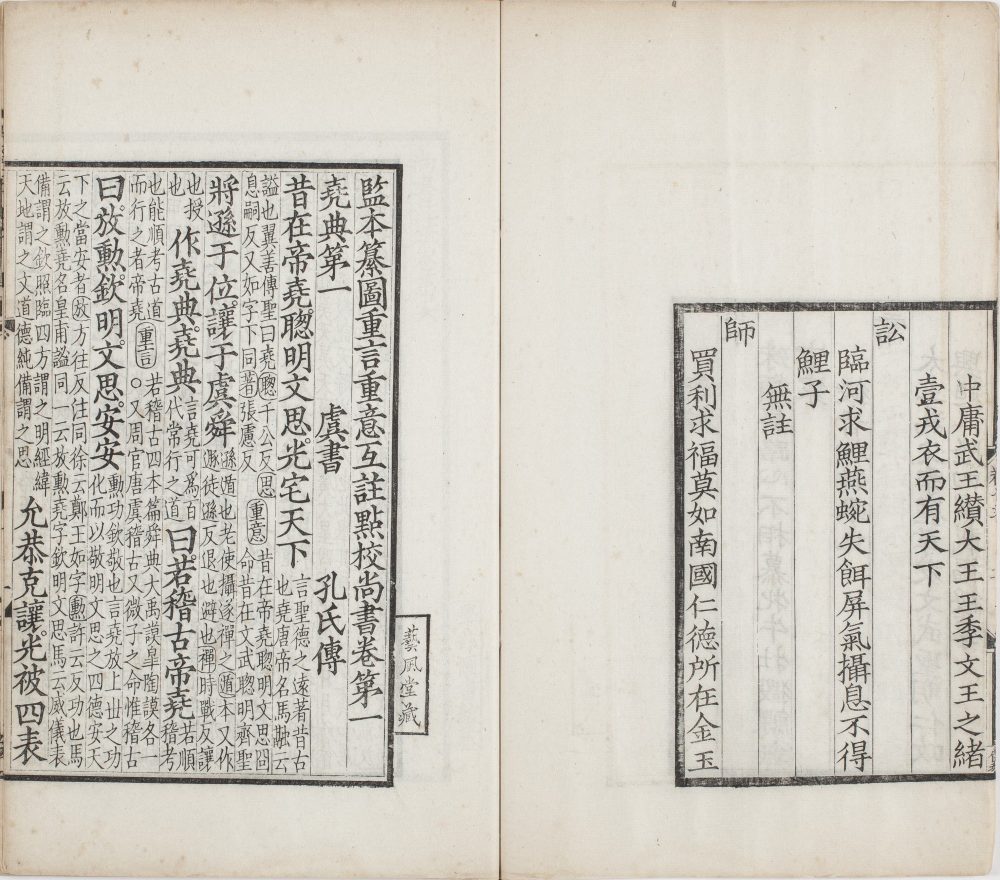 中庸武王纘大王王季文王之緒
壹戎衣而有天下
訟
臨河求鯉燕蜿失餌屏氣攝息不得
鯉子
無註
師
買利求福莫如南國仁徳所在金玉
監本纂圖重言重意互註點校尚書卷第一
堯典第一　虞書　孔氏傳
昔在帝堯聰明文思光宅天下
言聖德之遠著昔古
也堯唐帝名馬融云
謚也翼善傳聖曰堯聰千公反思
息嗣反又如字下同著張慮反
重意
昔在帝堯聰明文思冏
命昔在文武聰明齊聖
將遜于位讓于虞舜
遜遁也老使攝遂禪之遁本又作
遯徒遜反退也避也禪時戰反讓
也授
也
作堯典堯典
言堯可為百
代常行之道
曰若稽古帝堯
若順
稽考
也能順考古道
而行之者帝堯
重言
若稽古四本篇舜典大禹謨皐陶謨各一
○又周官唐虞稽古又微子之命惟稽古
曰放勲欽明文思安安
勲功欽敬也言堯放上世之功
化而以敬明文思之四德安天
下之當安者放方往反注同徐云鄭王如字勲許云反功也馬
云放勲堯名皇甫謐同一云放勲堯字欽明文思馬云威儀表
備謂之欽照臨四方謂之明經緯
天地謂之文道德純備謂之思
允恭克讓光被四表
藝風堂藏